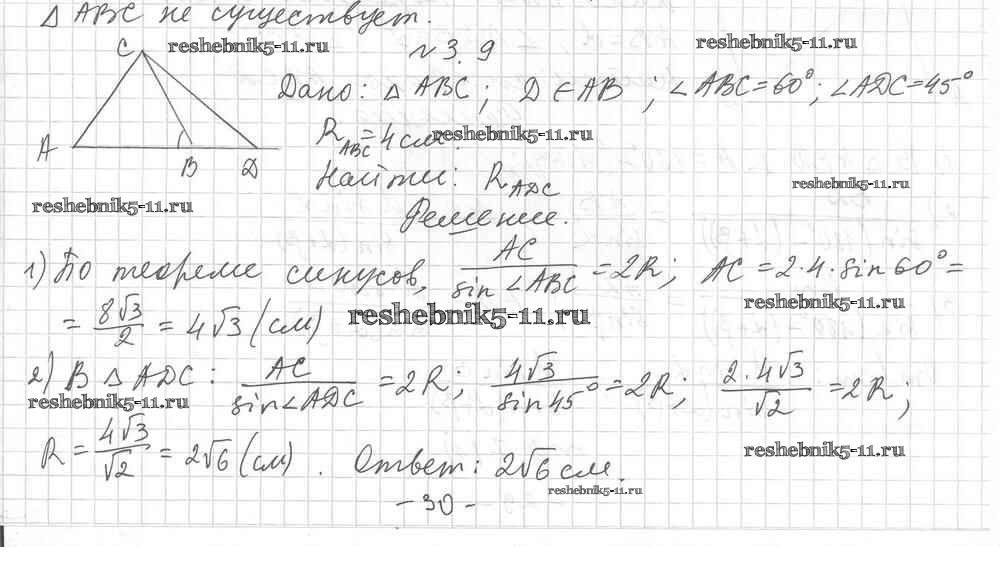 Δ ABC не существует.
C reshebnik5-11.ru №3.9 reshebnik5-11.ru
Дано: Δ ABC; D ∈ AB; ∠ABC = 60°; ∠ADC = 45°
A B D
R_ABC = 4 см. reshebnik5-11.ru
Найти: R_ADC reshebnik5-11.ru
reshebnik5-11.ru
Решение.
1) По теореме синусов, AC / sin∠ABC = 2R; AC = 2·4·sin 60° =
reshebnik5-11.ru
= 8√3 / 2 = 4√3 (см) reshebnik5-11.ru
2) В Δ ADC: AC / sin∠ADC = 2R; 4√3 / sin 45° = 2R; 2·4√3 / √2 = 2R;
reshebnik5-11.ru
R = 4√3 / √2 = 2√6 (см). Ответ: 2√6 см.
reshebnik5-11.ru
reshebnik5-11.ru
- 30 -